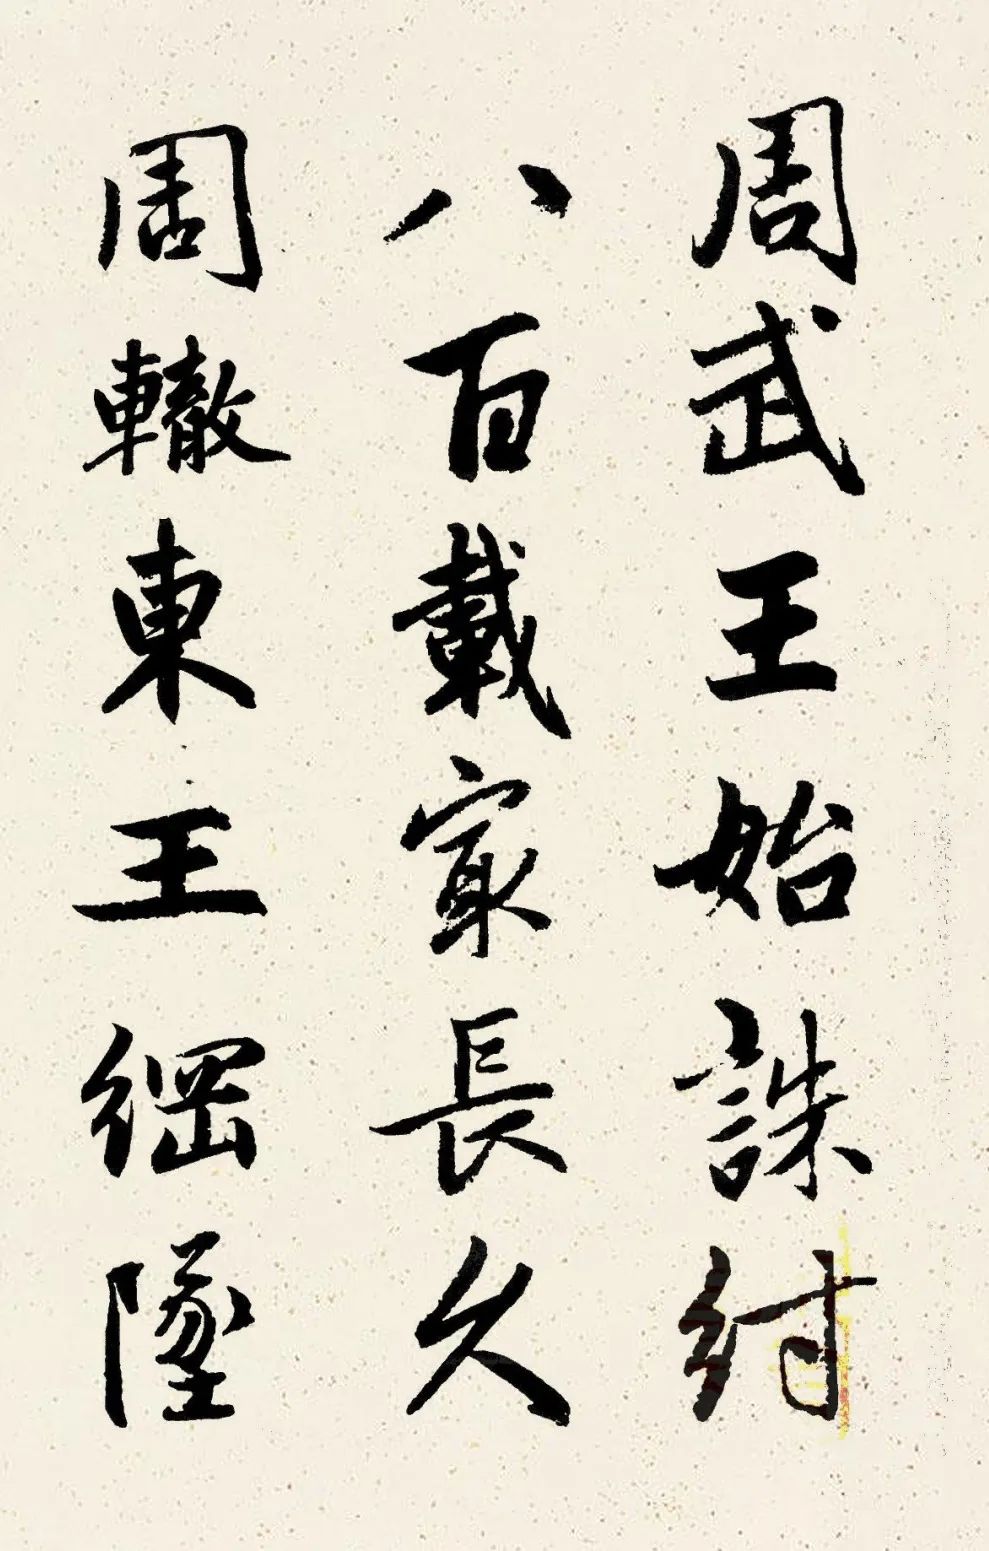 周武王始誅紂
八百載最長久
周轍東王綱墜